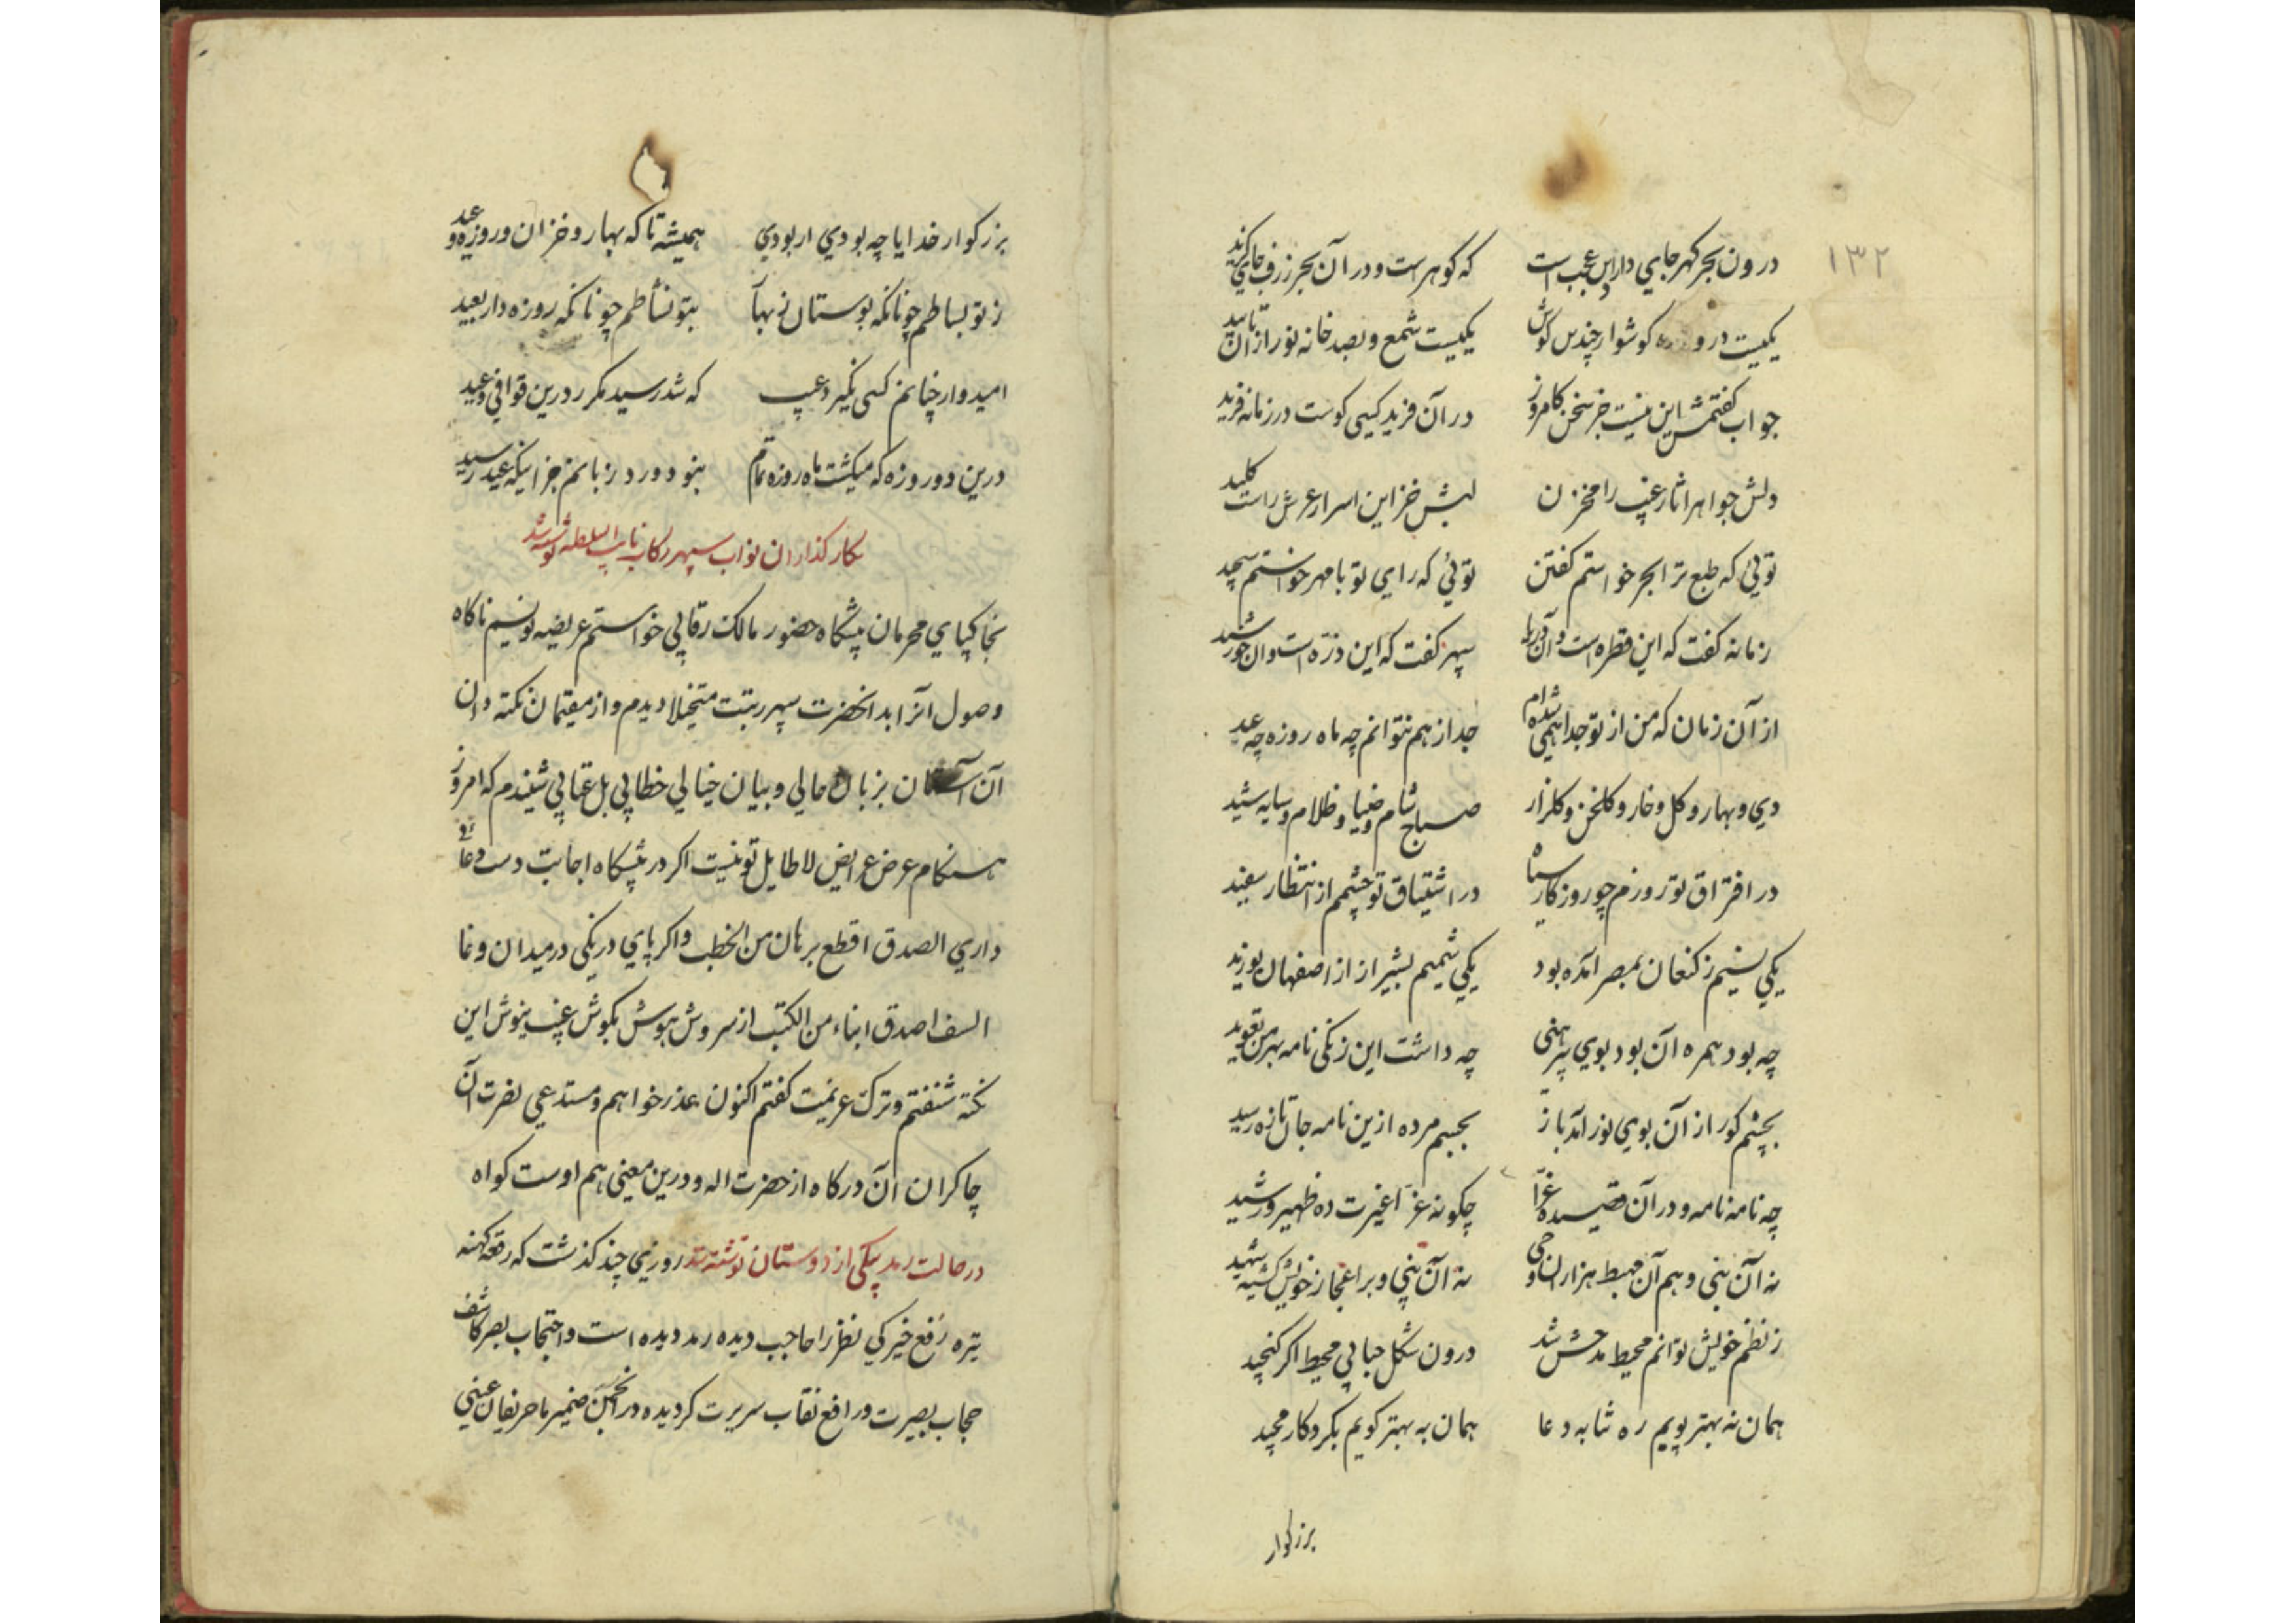 ۱۳۲
درون بحر گهر جای دارد این عجب است که گوهر است و در آن بحر ژرف جای گزید
یکیست در و گوشوار چندین گوش یکیست شمع و بصد خانه نور از آن تابید
جواب گفتمش این نیست جز سخن کامروز در آن فرید کسی کوست در زمانه فرید
دلش جواهر اثار غیب را مخزن لبش خزاین اسرار عرش راست کلید
توئی که طبع ترا بحر خواستم گفتن توئی که رای تو با مهر خواستم سنجید
زمانه گفت که این قطره است و آن دریا سپهر گفت که این ذرّه است و ان خورشید
از آن زمان که من از تو جدا همی شده‌ام جدا ز هم نتوانم چه ماه روزه چه عید
دی و بهار و گل و خار و گلخن و گلزار صباح و شام و ضیا و ظلام و سایه و شید
در افتراق تو روزم چو روزگار سیاه در اشتیاق تو چشمم از انتظار سفید
یکی نسیم ز کنعان بمصر آمده بود یکی شمیم بشیراز از اصفهان بوزید
چه بود همره آن بود بوی پیرهنی چه داشت این ز یکی نامه بهر من تعوید
بچشم کور از آن بوی نور آمد باز بجسم مرده ازین نامه جان تازه رسید
چه نامه نامه و در آن قصیده غرّا چگونه غرّا غیرت ده ظهیر و رشید
نه آن نبی و هم آن مهبط هزاران وحی نه آن نبی و بر اعجاز خویش گشته شهید
ز نظم خویش توانم محیط مدحش شد درون شکل حبابی محیط اگر گنجید
همان به بهتر پویم ره ثنا به دعا همان به بهتر گویم بکردگار مجید
بزرگوار
بزرگوار خدایا چه بودی ار بودی همیشه تا که بهار و خزان و روزه و عید
ز تو بساطم چونانکه بوستان ز بهار بتو نشاطم چونانکه روزه دار بعید
امیدوار چنانم کسی نگیرد عیب که شد رسید مکرر درین قوافی و عید
درین دو روزه که میگشت ماه روزه تمام نبود ورد زبانم جز اینکه عید رسید
بکار گذاران نواب سپهر رکاب نایب السلطنه نوشته شد
بخاکپای محرمان پیشگاه حضور مالک رقابی خواستم عریضه نویسم ناگاه
وصول آنرا بدانحضرت سپهر رتبت متخیلا دیدم و از مقیمان نکته دان
آن آستان بزبان حالی و بیان خیالی خطابی بل عتابی شنیدم که امروز
هنگام عرض عرایض لاطایل تو نیست اگر در پیشگاه اجابت دست دعائی
داری الصدق اقطع برهان من الخطب و اگر پای دریکی در میدان وغا
السف اصدق ابناء من الکتب از سروش هوش بگوش غیب نیوش این
نکته شنفتم و ترک عزیمت گفتم اکنون عذر خواهم و مستدعی نصرت آن
چاکران آن درگاه از حضرت اله و درین معنی هم اوست گواه
در حالت رمد بیکی از دوستان نوشته شد روزی چند گذشت که رقعه کهنه
تیره رفع خیرگی نظر را حاجب دیده رمد دیده است و احتجاب بصر کاشف
حجاب بصیرت و رافع نقاب سریرت گردیده در انجمن ضمیر ما حریفان عینی